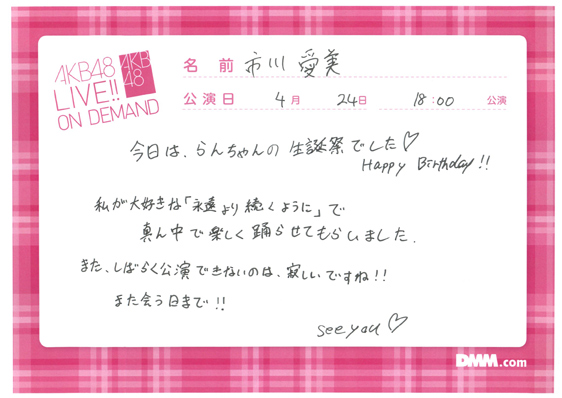 AKB48
LIVE!!
ON DEMAND
AKB
48
名前 市川 愛美
公演日 4月 24日 18:00 公演
今日は、らんちゃんの生誕祭でした♡
Happy Birthday!!
私が大好きな「永遠より続くように」で
真ん中で楽しく踊らせてもらいました.
また、しばらく公演できないのは、寂しいですね!!
また会う日まで!!
see you♡
DMM.com